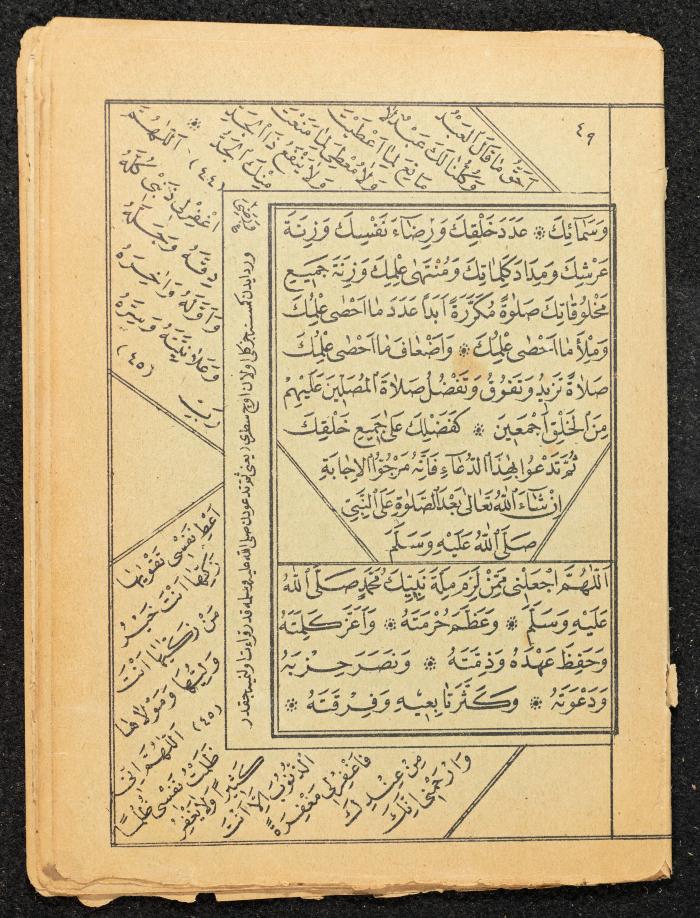 ٤٩
وَسَمَائِكَ ❊ عَدَدَ خَلْقِكَ وَرِضَاءَ نَفْسِكَ وَزِنَةَ
عَرْشِكَ وَمِدَادَ كَلِمَاتِكَ وَمُنْتَهٰى عِلْمِكَ وَزِنَةَ جَمِيعِ
مَخْلُوقَاتِكَ صَلٰوةً مُكَرَّرَةً اَبَدًا عَدَدَ مَا اَحْصٰى عِلْمُكَ
وَمِلْأَ مَا اَحْصٰى عِلْمُكَ ❊ وَاَضْعَافَ مَا اَحْصٰى عِلْمُكَ
صَلَاةً تَزِيدُ وَتَفُوقُ وَتَفْضُلُ صَلَاةَ الْمُصَلِّينَ عَلَيْهِمْ
مِنَ الْخَلْقِ اَجْمَعِينَ ❊ كَفَضْلِكَ عَلٰى جَمِيعِ خَلْقِكَ
ثُمَّ تَدْعُوا بِهٰذَا الدُّعَاءِ فَاِنَّهُ مَرْجُوُّ الْاِجَابَةِ
اِنْ شَاءَ اللّٰهُ تَعَالٰى بَعْدَ الصَّلٰوةِ عَلَى النَّبِيِّ
صَلَّى اللّٰهُ عَلَيْهِ وَسَلَّمَ
اَللّٰهُمَّ اجْعَلْنِى مِمَّنْ لَزِمَ مِلَّةَ نَبِيِّكَ مُحَمَّدٍ صَلَّى اللّٰهُ
عَلَيْهِ وَسَلَّمَ ❊ وَعَظَّمَ حُرْمَتَهُ ❊ وَاَعَزَّ كَلِمَتَهُ
وَحَفِظَ عَهْدَهُ وَذِمَّتَهُ ❊ وَنَصَرَ حِزْبَهُ
وَدَعْوَتَهُ ❊ وَكَثَّرَ تَابِعِيهِ وَفِرْقَتَهُ ❊
اَحَقُّ مَا قَالَ الْعَبْدُ
وَكُلُّنَا لَكَ عَبْدٌ لَا
مَانِعَ لِمَا اَعْطَيْتَ
وَلَا مُعْطِىَ لِمَا مَنَعْتَ
وَلَا يَنْفَعُ ذَا الْجَدِّ
مِنْكَ الْجَدُّ
❊ (٤٤) اَللّٰهُمَّ
اغْفِرْلِى ذَنْبِى كُلَّهُ
دِقَّهُ وَجِلَّهُ
وَاَوَّلَهُ وَاٰخِرَهُ
وَعَلَانِيَتَهُ وَسِرَّهُ
(٤٥) رَبِّ
اَعْطِ نَفْسِى تَقْوٰيهَا
زَكِّهَا اَنْتَ خَيْرُ
مَنْ زَكّٰيهَا اَنْتَ
وَلِيُّهَا وَمَوْلَاهَا
(٤٥) اَللّٰهُمَّ اِنِّى
ظَلَمْتُ نَفْسِى ظُلْمًا
كَثِيرًا وَلَا يَغْفِرُ
الذُّنُوبَ اِلَّا اَنْتَ
فَاغْفِرْلِى مَغْفِرَةً
مِنْ عِنْدِكَ
وَارْحَمْنِى اِنَّكَ